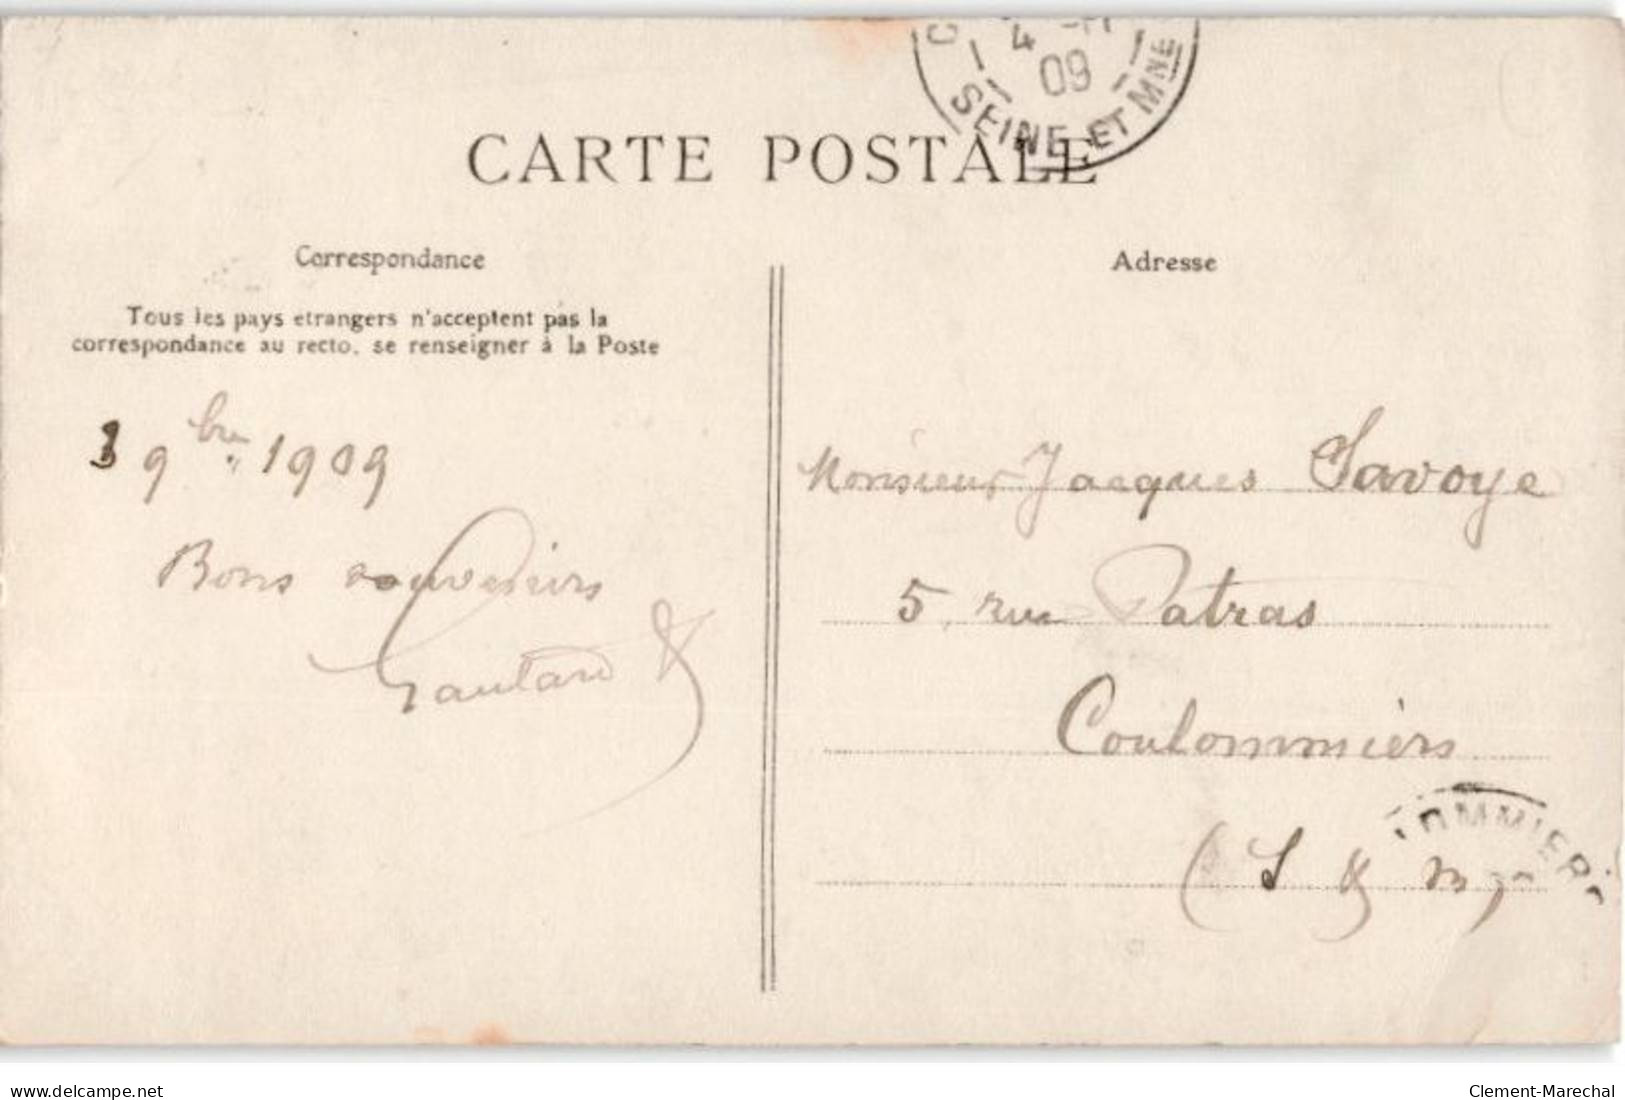 4 -11
09
SEINE ET MNE
CARTE POSTALE
Correspondance
Tous les pays etrangers n'acceptent pas la
correspondance au recto, se renseigner à la Poste
3 9bre 1909
Bons souvenirs
Gautard
Adresse
Monsieur Jacques Savoye
5, rue Patras
Coulommiers
(S & M)
OMMIERS
delcampe.net
Clement-Marechal